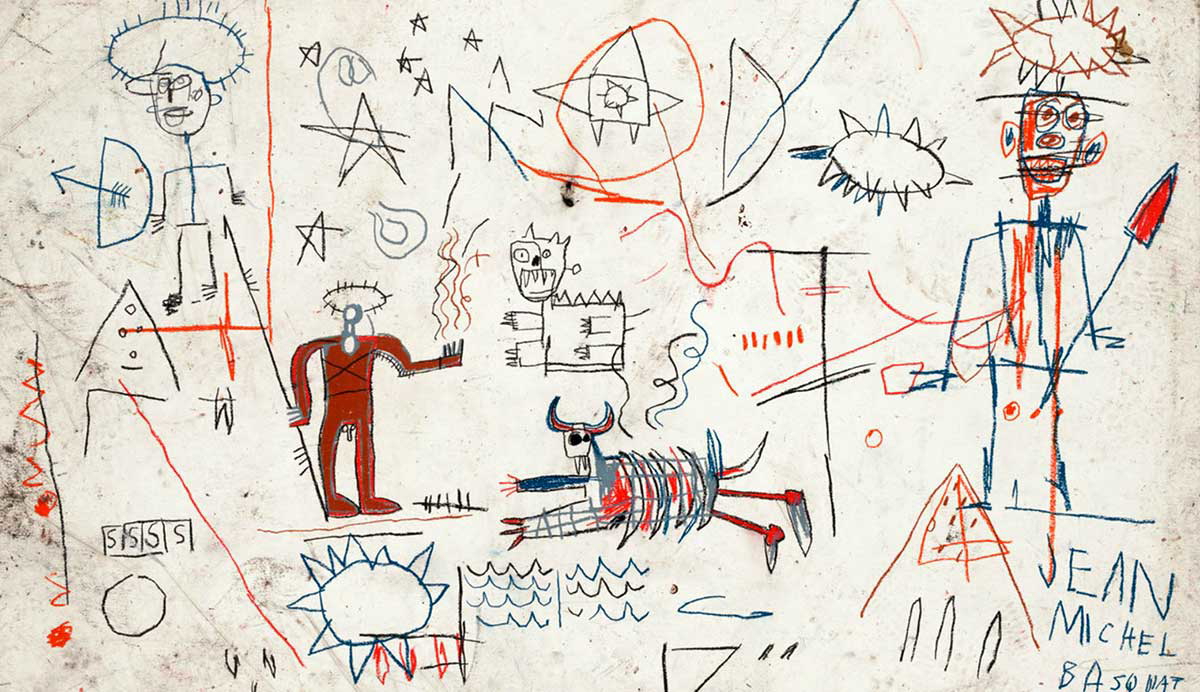 SSSS
JEAN
MICHEL
BASQNAT